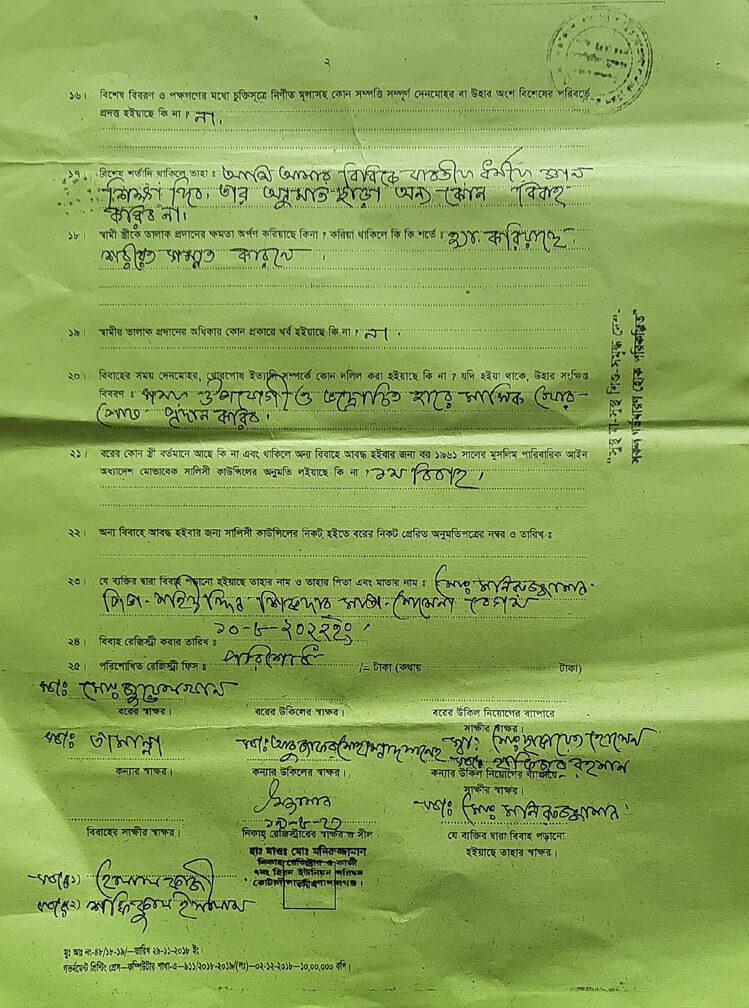 ২
১৬। বিশেষ বিবরণ ও পক্ষগণের মধ্যে চুক্তিসূত্রে নির্ণীত মূল্যসহ কোন সম্পত্তি সম্পূর্ণ দেনমোহর বা উহার অংশ বিশেষের পরিবর্তে
প্রদত্ত হইয়াছে কি না ? না।
১৭। বিশেষ শর্তাদি থাকিলে তাহা : আমি আমার বিবিকে যাবতীয় ধর্মীয় জ্ঞান
শিক্ষা দিব। তার অনুমতি ছাড়া অন্য কোন বিবাহ
করিব না।
১৮। স্বামী স্ত্রীকে তালাক প্রদানের ক্ষমতা অর্পণ করিয়াছে কিনা ? করিয়া থাকিলে কি কি শর্তে : হ্যা করিয়াছে।
শরীয়ত সম্মত কারনে।
১৯। স্বামীর তালাক প্রদানের অধিকার কোন প্রকারে খর্ব হইয়াছে কি না ? না।
২০। বিবাহের সময় দেনমোহর, খোরপোষ ইত্যাদি সম্পর্কে কোন দলিল করা হইয়াছে কি না ? যদি হইয়া থাকে, উহার সংক্ষিপ্ত
বিবরণ : সময় উপযোগী ও ভদ্রোচিত হারে মাসিক খোর-
পোষ প্রদান করিব।
২১। বরের কোন স্ত্রী বর্তমানে আছে কি না এবং থাকিলে অন্য বিবাহে আবদ্ধ হইবার জন্য বর ১৯৬১ সালের মুসলিম পারিবারিক আইন
অধ্যাদেশ মোতাবেক সালিসী কাউন্সিলের অনুমতি লইয়াছে কি না ? ১ম বিবাহ।
২২। অন্য বিবাহে আবদ্ধ হইবার জন্য সালিসী কাউন্সিলের নিকট হইতে বরের নিকট প্রেরিত অনুমতিপত্রের নম্বর ও তারিখ :
২৩। যে ব্যক্তির দ্বারা বিবাহ পড়ানো হইয়াছে তাহার নাম ও তাহার পিতা এবং মাতার নাম : মোঃ মনিরুজ্জামান
পিতা- শিকদার মাতা- বেগম
২৪। বিবাহ রেজিস্ট্রী করার তারিখ :
২৫। পরিশোধিত রেজিস্ট্রী ফিস : পরিশোধ /= টাকা (কথায় টাকা)
স্বাঃ মোঃ জুয়েল খান
বরের স্বাক্ষর। বরের উকিলের স্বাক্ষর। বরের উকিল নিয়োগের ব্যাপারে
সাক্ষীর স্বাক্ষর।
স্বাঃ তামান্না স্বাঃ স্বাঃ মোঃ হোসেন
রহমান
কন্যার স্বাক্ষর। কন্যার উকিলের স্বাক্ষর। কন্যার উকিল নিয়োগের ব্যাপারে
সাক্ষীর স্বাক্ষর।
স্বাঃ মোঃ মনিরুজ্জামান
বিবাহের সাক্ষীর স্বাক্ষর। নিকাহ্ রেজিস্ট্রারের স্বাক্ষর ও সীল যে ব্যক্তির দ্বারা বিবাহ পড়ানো
হইয়াছে তাহার স্বাক্ষর।
হাঃ মাওঃ মোঃ মনিরুজ্জামান
নিকাহ রেজিস্ট্রার ও কাজী
৭নং হিরন ইউনিয়ন পরিষদ
কোটালীপাড়া, গোপালগঞ্জ।
স্বাঃ (১)
স্বাঃ (২) ইসলাম
"সুস্থ মা-সুস্থ শিশু-সমৃদ্ধ দেশ-
সকল গর্ভধারণ হোক পরিকল্পিত"
মুঃ আঃ নং-৪৮/১৮-১৯/—তারিখ ২৯-১১-২০১৮ ইং।
গভর্নমেন্ট প্রিন্টিং প্রেস—কম্পিউটার শাখা-এ—৯১১/২০১৮-২০১৯/(লঃ)—০২-১২-২০১৮—১০,০০,০০০ কপি।